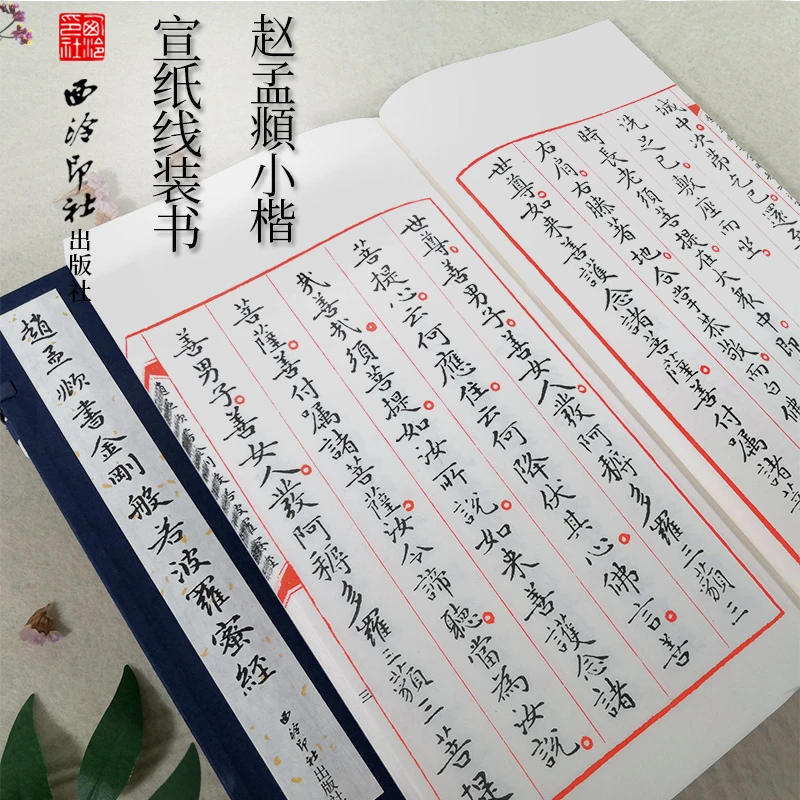 西泠印社
西泠印社出版社
赵孟頫小楷
宣纸线装书
城中次第乞已還至
洗足已敷座而坐
時長老須菩提在大衆中即
右肩右膝著地合掌恭敬而白佛
世尊如来善護念諸菩薩善付囑諸菩
世尊善男子善女人發阿耨多羅三藐三
菩提心云何應住云何降伏其心佛言善
哉善哉須菩提如汝所說如来善護念諸
菩薩善付囑諸菩薩汝今諦聽當為汝說
善男子善女人發阿耨多羅三藐三菩提
三
趙孟頫書金剛般若波羅蜜經
西泠印社出版社